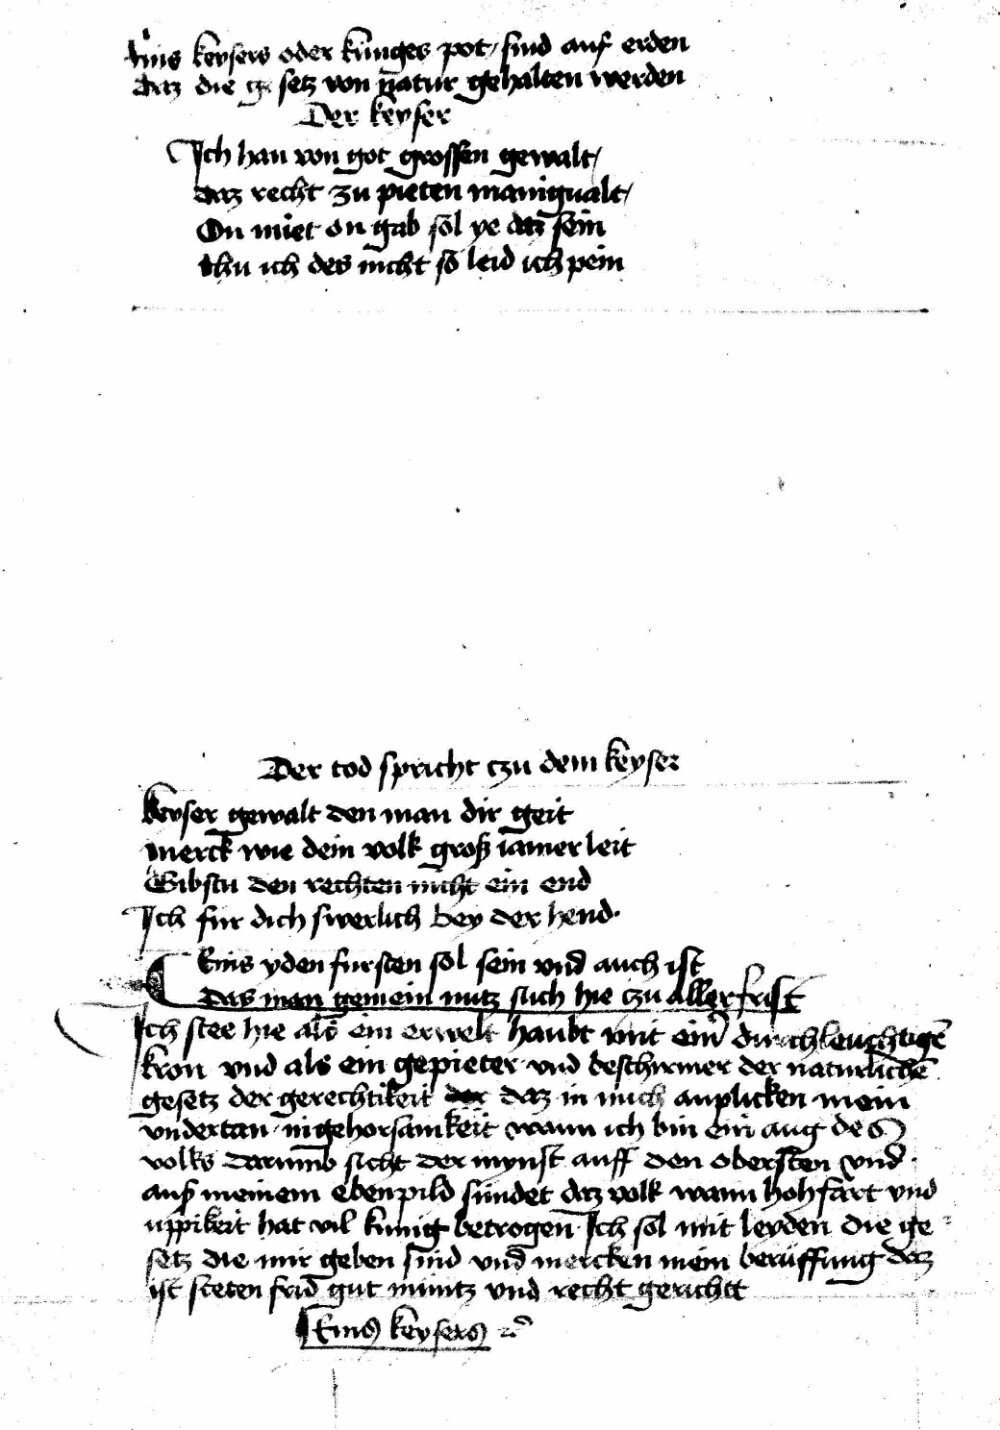 Eins keysers oder kuniges pot / sind auf erden
Daz die ge setz von natur gehalten werden
Der keyser
Ich han von got grossen gewalt /
daz recht zu pieten manigualt /
On miet on gab sol ye daz sein
thu ich des nicht so leid ich pein
Der tod spricht czu dem keyser
Keyser gewalt den man dir geit
merck wie dein volk groß iamer leit
Gibstu den rechten nicht ein end
Ich fur dich swerlich bey der hend.
Eins yden fursten sol sein vnd auch ist
Das man gemein nutz such hie czu aller frist
Ich stee hie als ein erwelt haubt mit eim durchleuchtigē
kron vnd als ein gepieter vnd beschirmer der naturlichē
gesetz der gerechtikeit daz in mich anplicken mein
vndertan in gehorsamkeit wann ich bin ein aug des
volks darumb sicht der mynst auff den obersten vnd
auß meinem ebenpild sundet daz volk wann hohfart vnd
uppikeit hat vil kunig betrogen Ich sol mit leyden die ge
setz die mir geben sind vnd mercken mein beruffung daz
ist steten frid gut muntz vnd recht gericht
Eins keysers